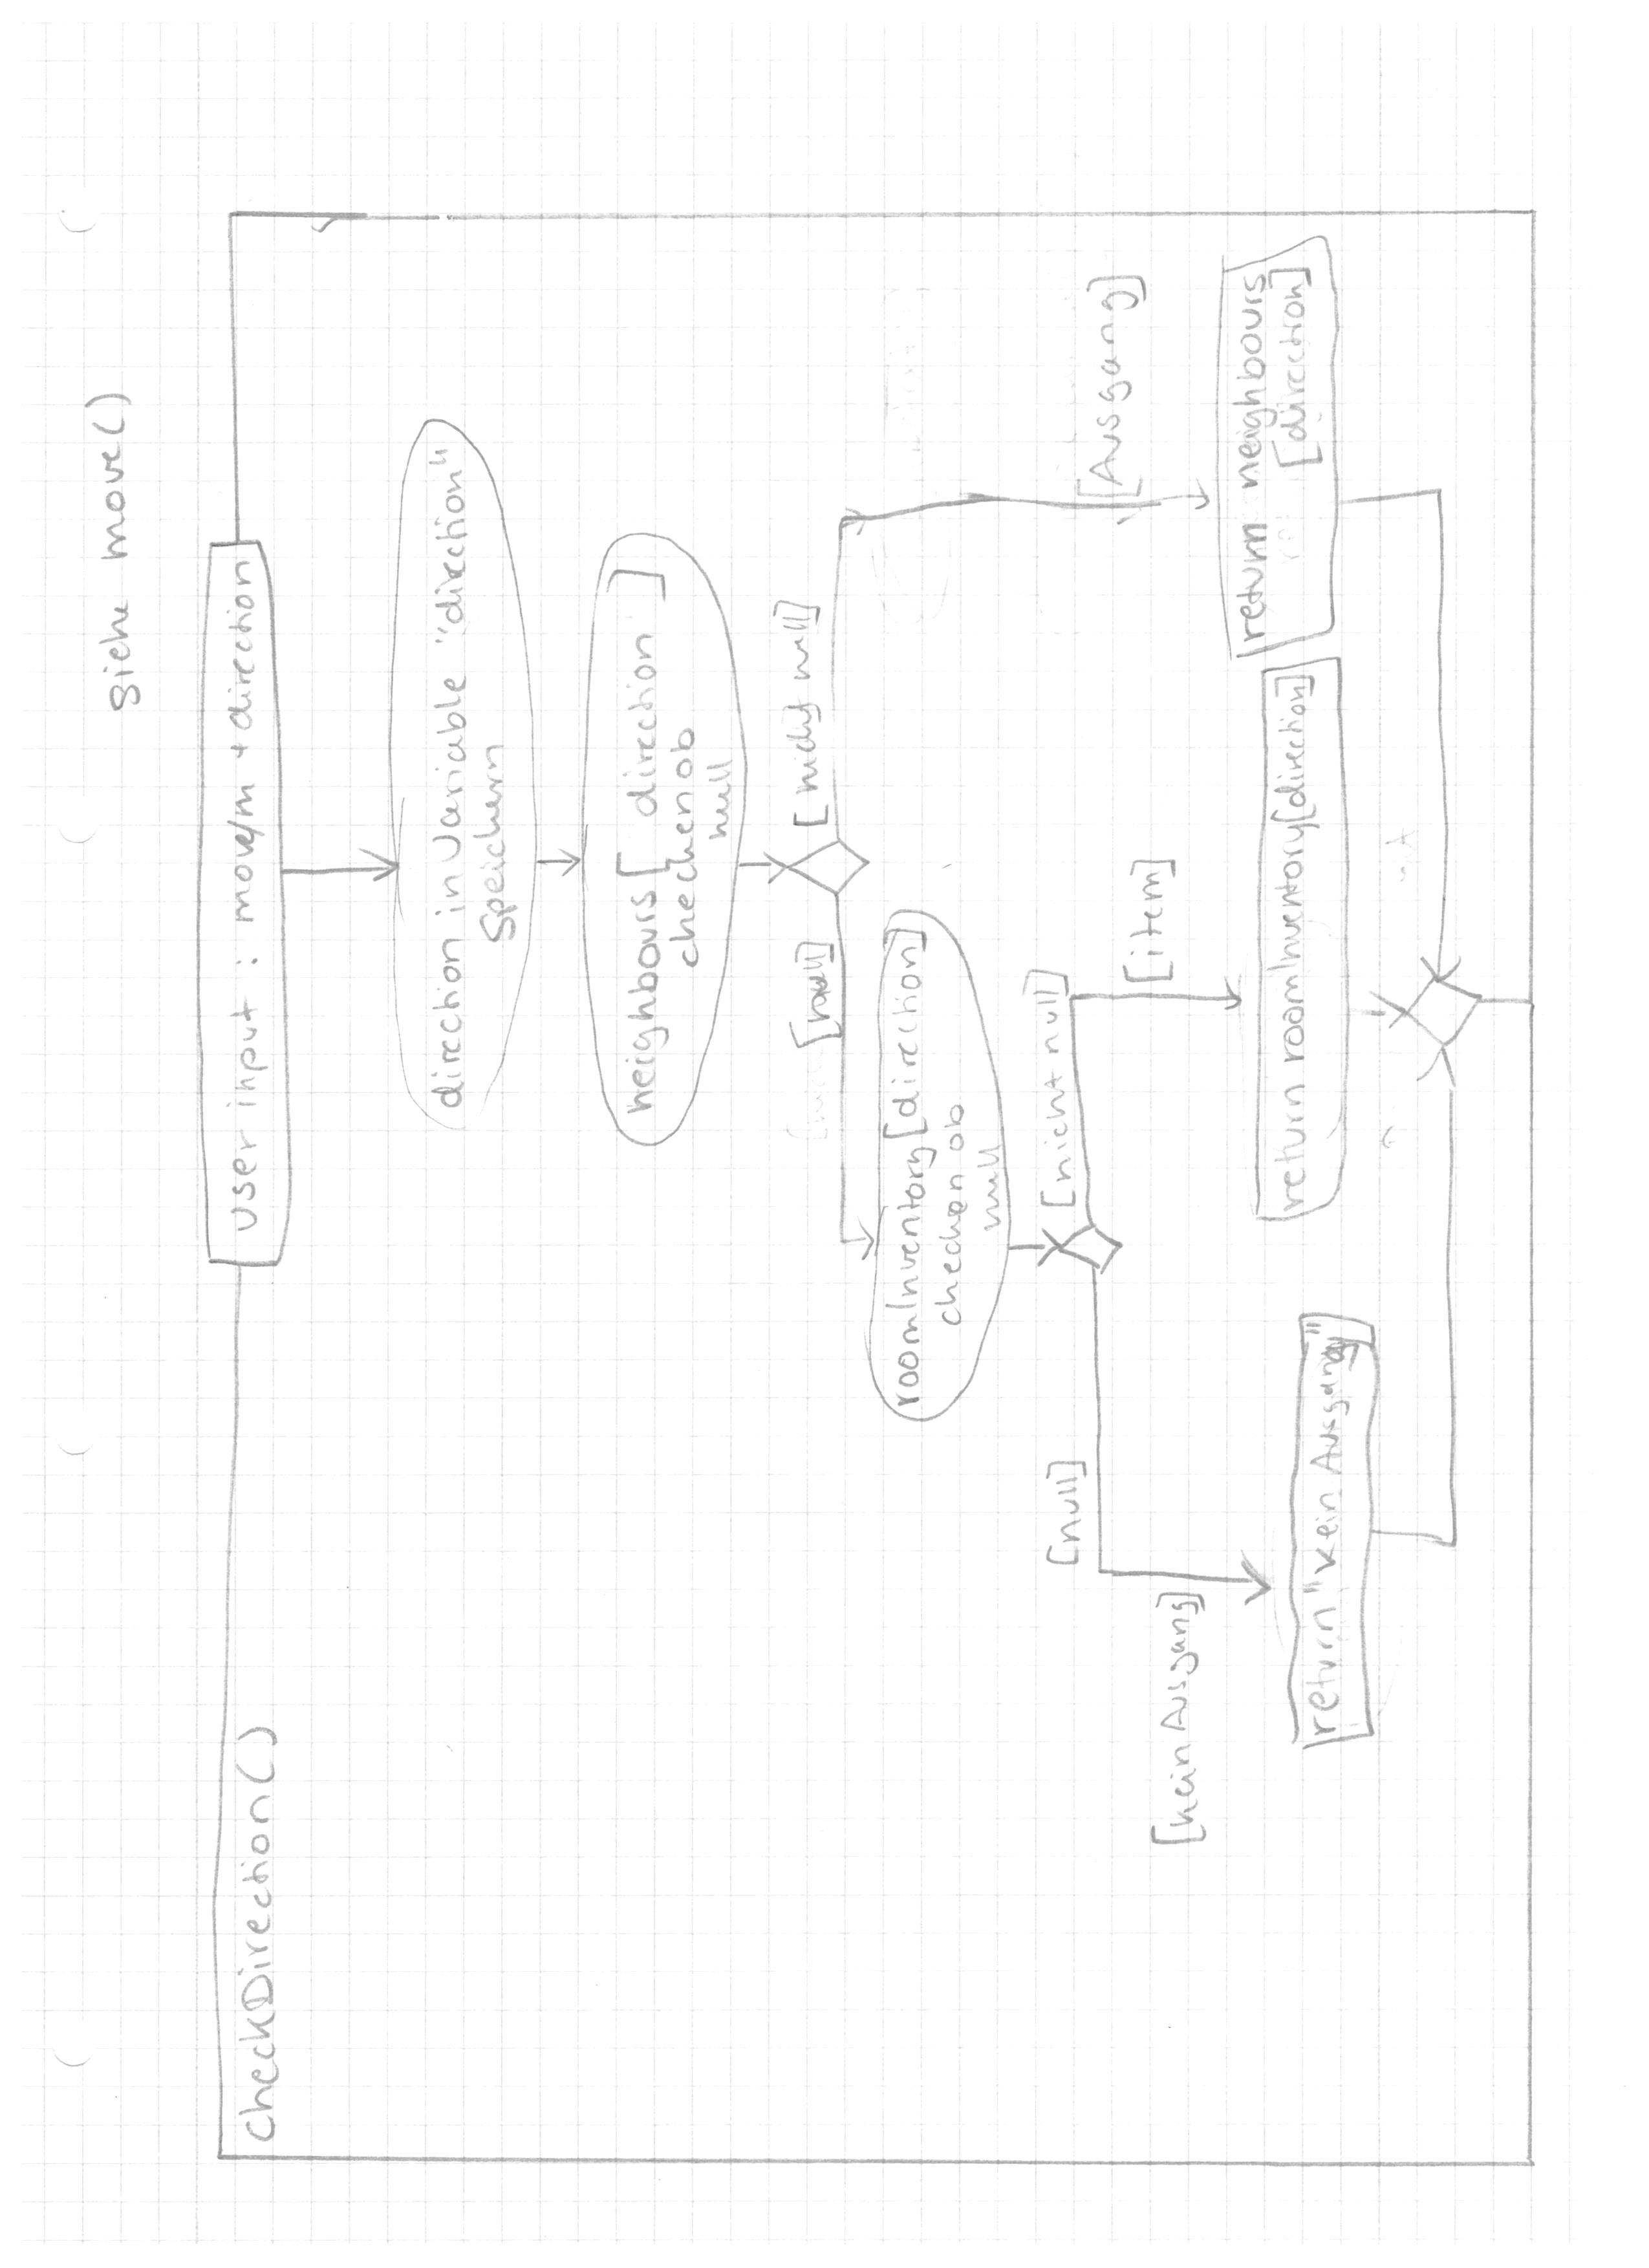 siehe move()
checkDirection()
user input : move/m + direction
direction in Variable "direction"
speichern
neighbours [ direction ]
checken ob
null
[null]
[nicht null]
roomInventory[direction]
checken ob
null
[null]
[nicht null]
[Ausgang]
[item]
[kein Ausgang]
return neighbours
[direction]
return roomInventory[direction]
return "kein Ausgang"